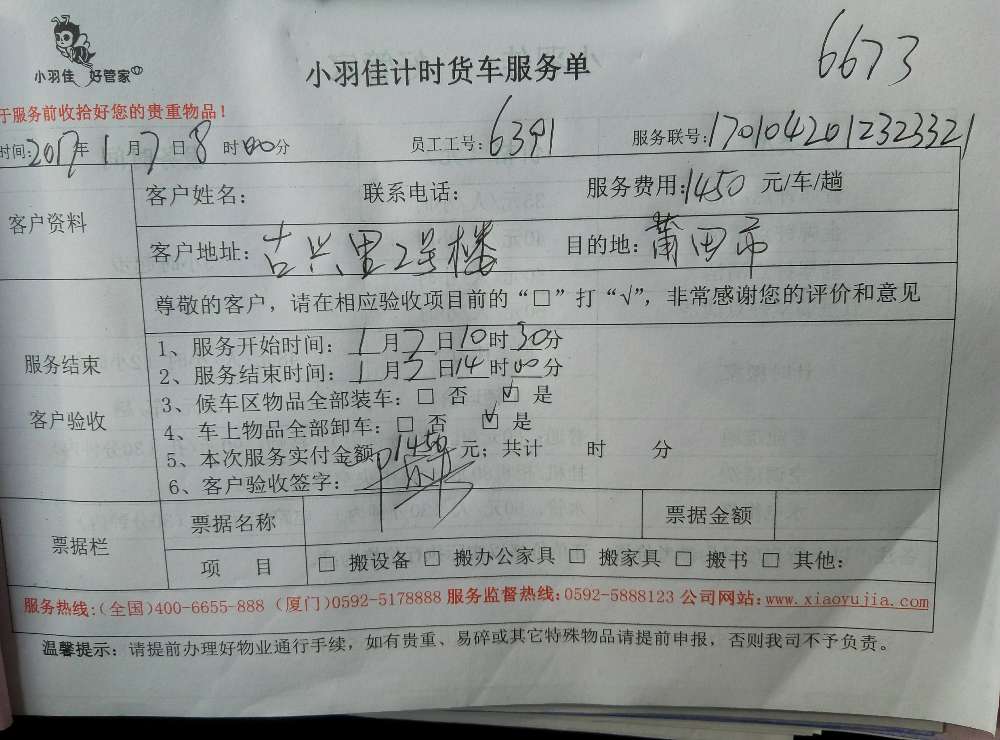 6673
小羽佳 好管家
小羽佳计时货车服务单
于服务前收拾好您的贵重物品！
时间:2017年1月7日8时00分 员工工号:6391 服务联号:1701042012323321
客户资料
客户姓名: 联系电话: 服务费用:1450元/车/趟
客户地址: 古兴里2号楼 目的地:莆田市
尊敬的客户，请在相应验收项目前的“□”打“√”，非常感谢您的评价和意见
服务结束
客户验收
1、服务开始时间: 1月7日10时30分
2、服务结束时间: 1月7日14时00分
3、候车区物品全部装车:□ 否 ☑ 是
4、车上物品全部卸车:□ 否 ☑ 是
5、本次服务实付金额 1450元; 共计 时 分
6、客户验收签字:
票据栏
票据名称 票据金额
项 目 □ 搬设备 □ 搬办公家具 □ 搬家具 □ 搬书 □ 其他:
服务热线:(全国)400-6655-888 (厦门)0592-5178888 服务监督热线:0592-5888123 公司网站:www.xiaoyujia.com
温馨提示: 请提前办理好物业通行手续，如有贵重、易碎或其它特殊物品请提前申报，否则我司不予负责。